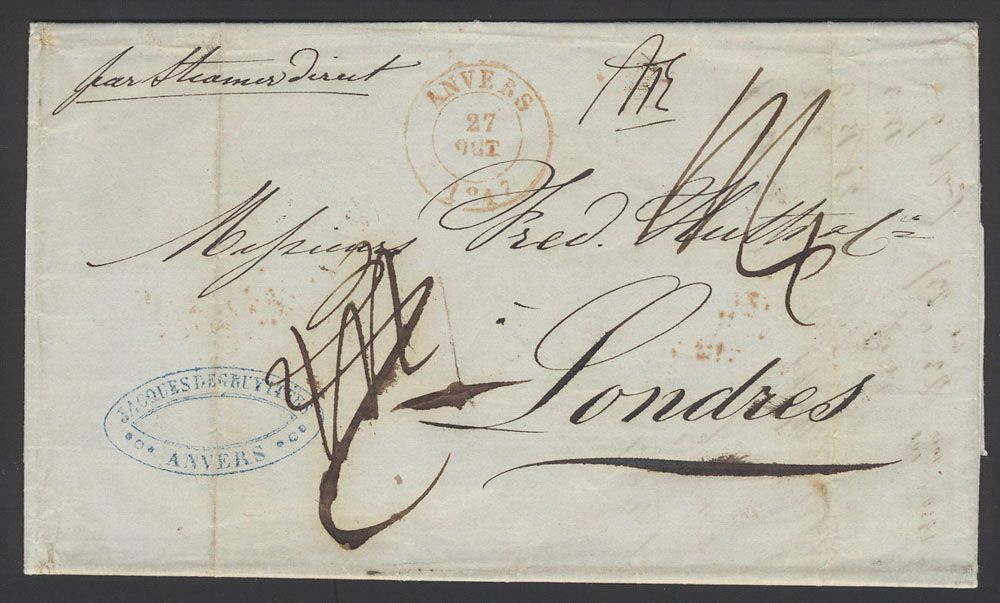 par Steamer direct
ANVERS
27
OCT
184
Messieurs Fred. Huth & Cie
à Londres
JACQUES DEGRUYTTERS
ANVERS